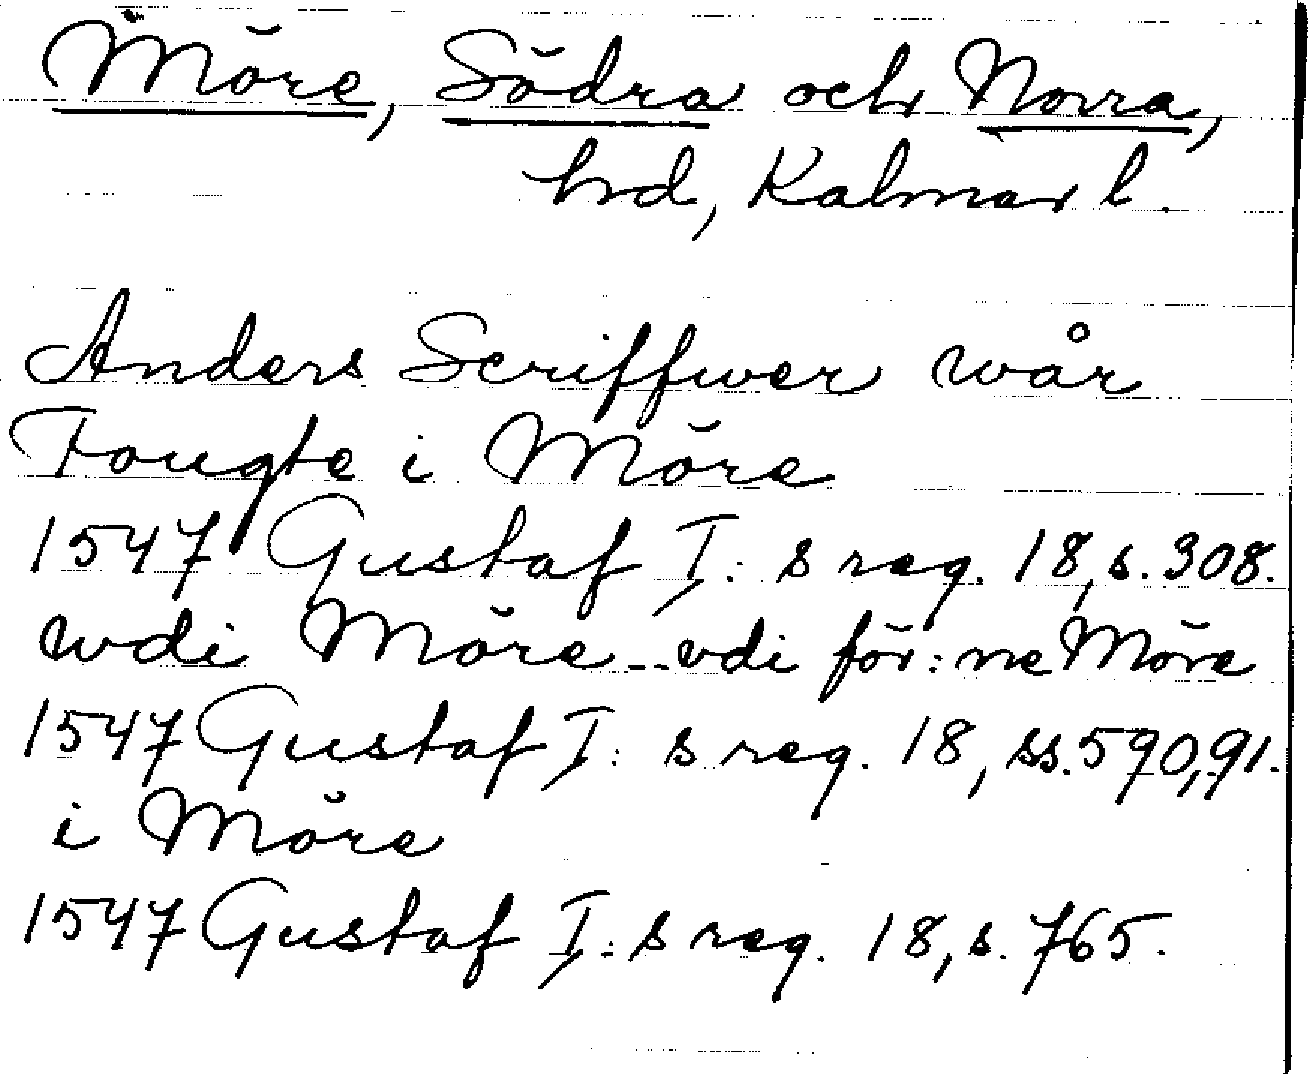 Möre, Södra och Norra,
hrd, Kalmar l.
Anders Scriffwer wår
Fougte i Möre
1547 Gustaf I: s reg. 18, s. 308.
wdi Möre -- vdi för: ne Möre
1547 Gustaf I: s reg. 18, ss. 590, 91.
i Möre
1547 Gustaf I: s reg. 18, s. 765.